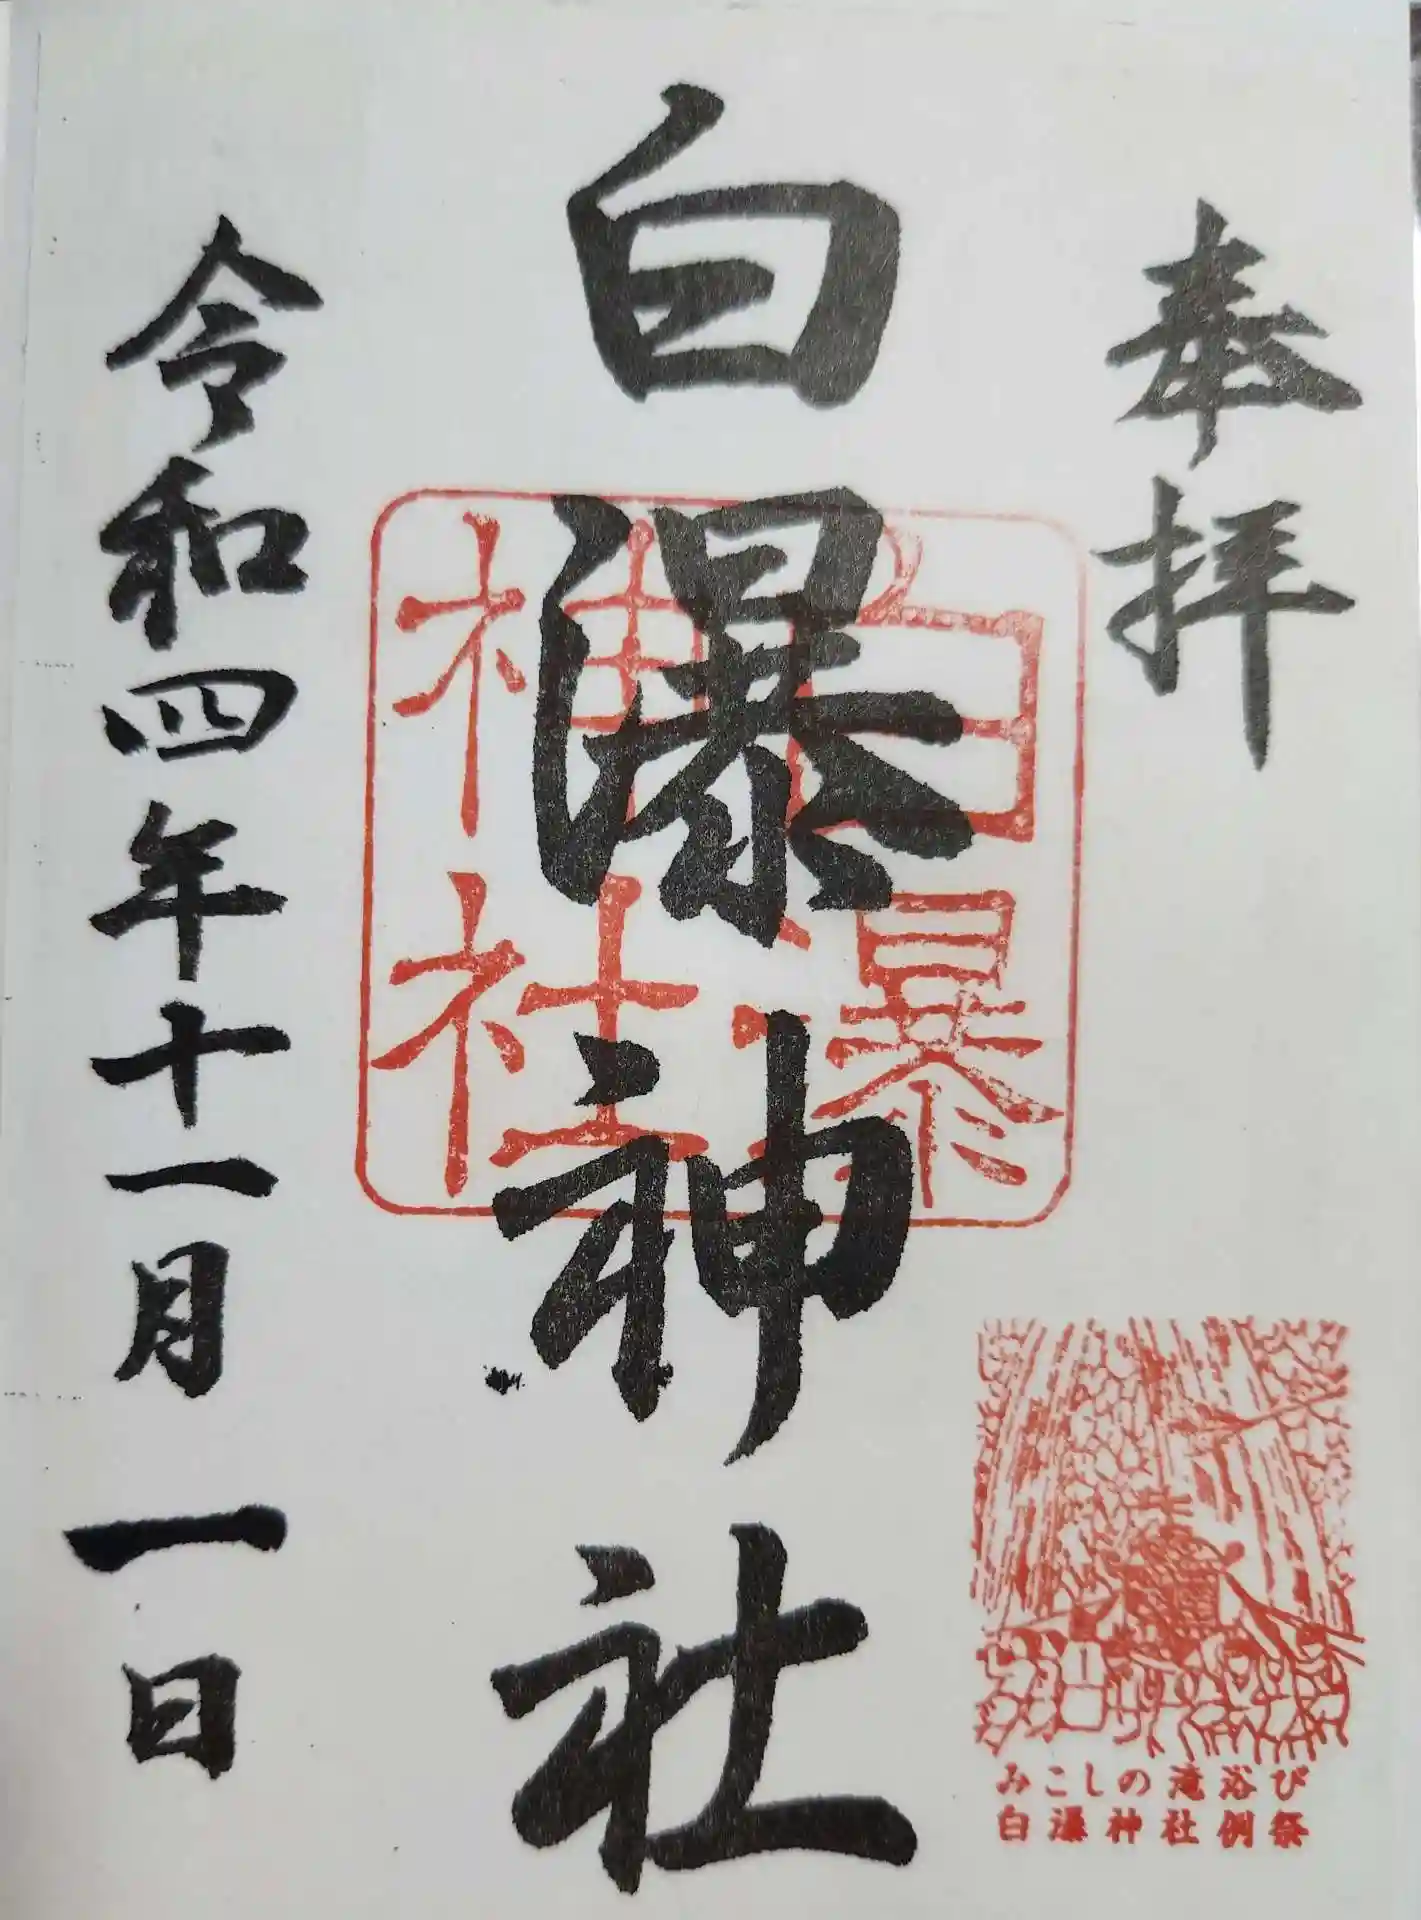 奉拝
白瀑神社
白瀑
神社
令和四年十一月一日
みこしの滝浴び
白瀑神社例祭